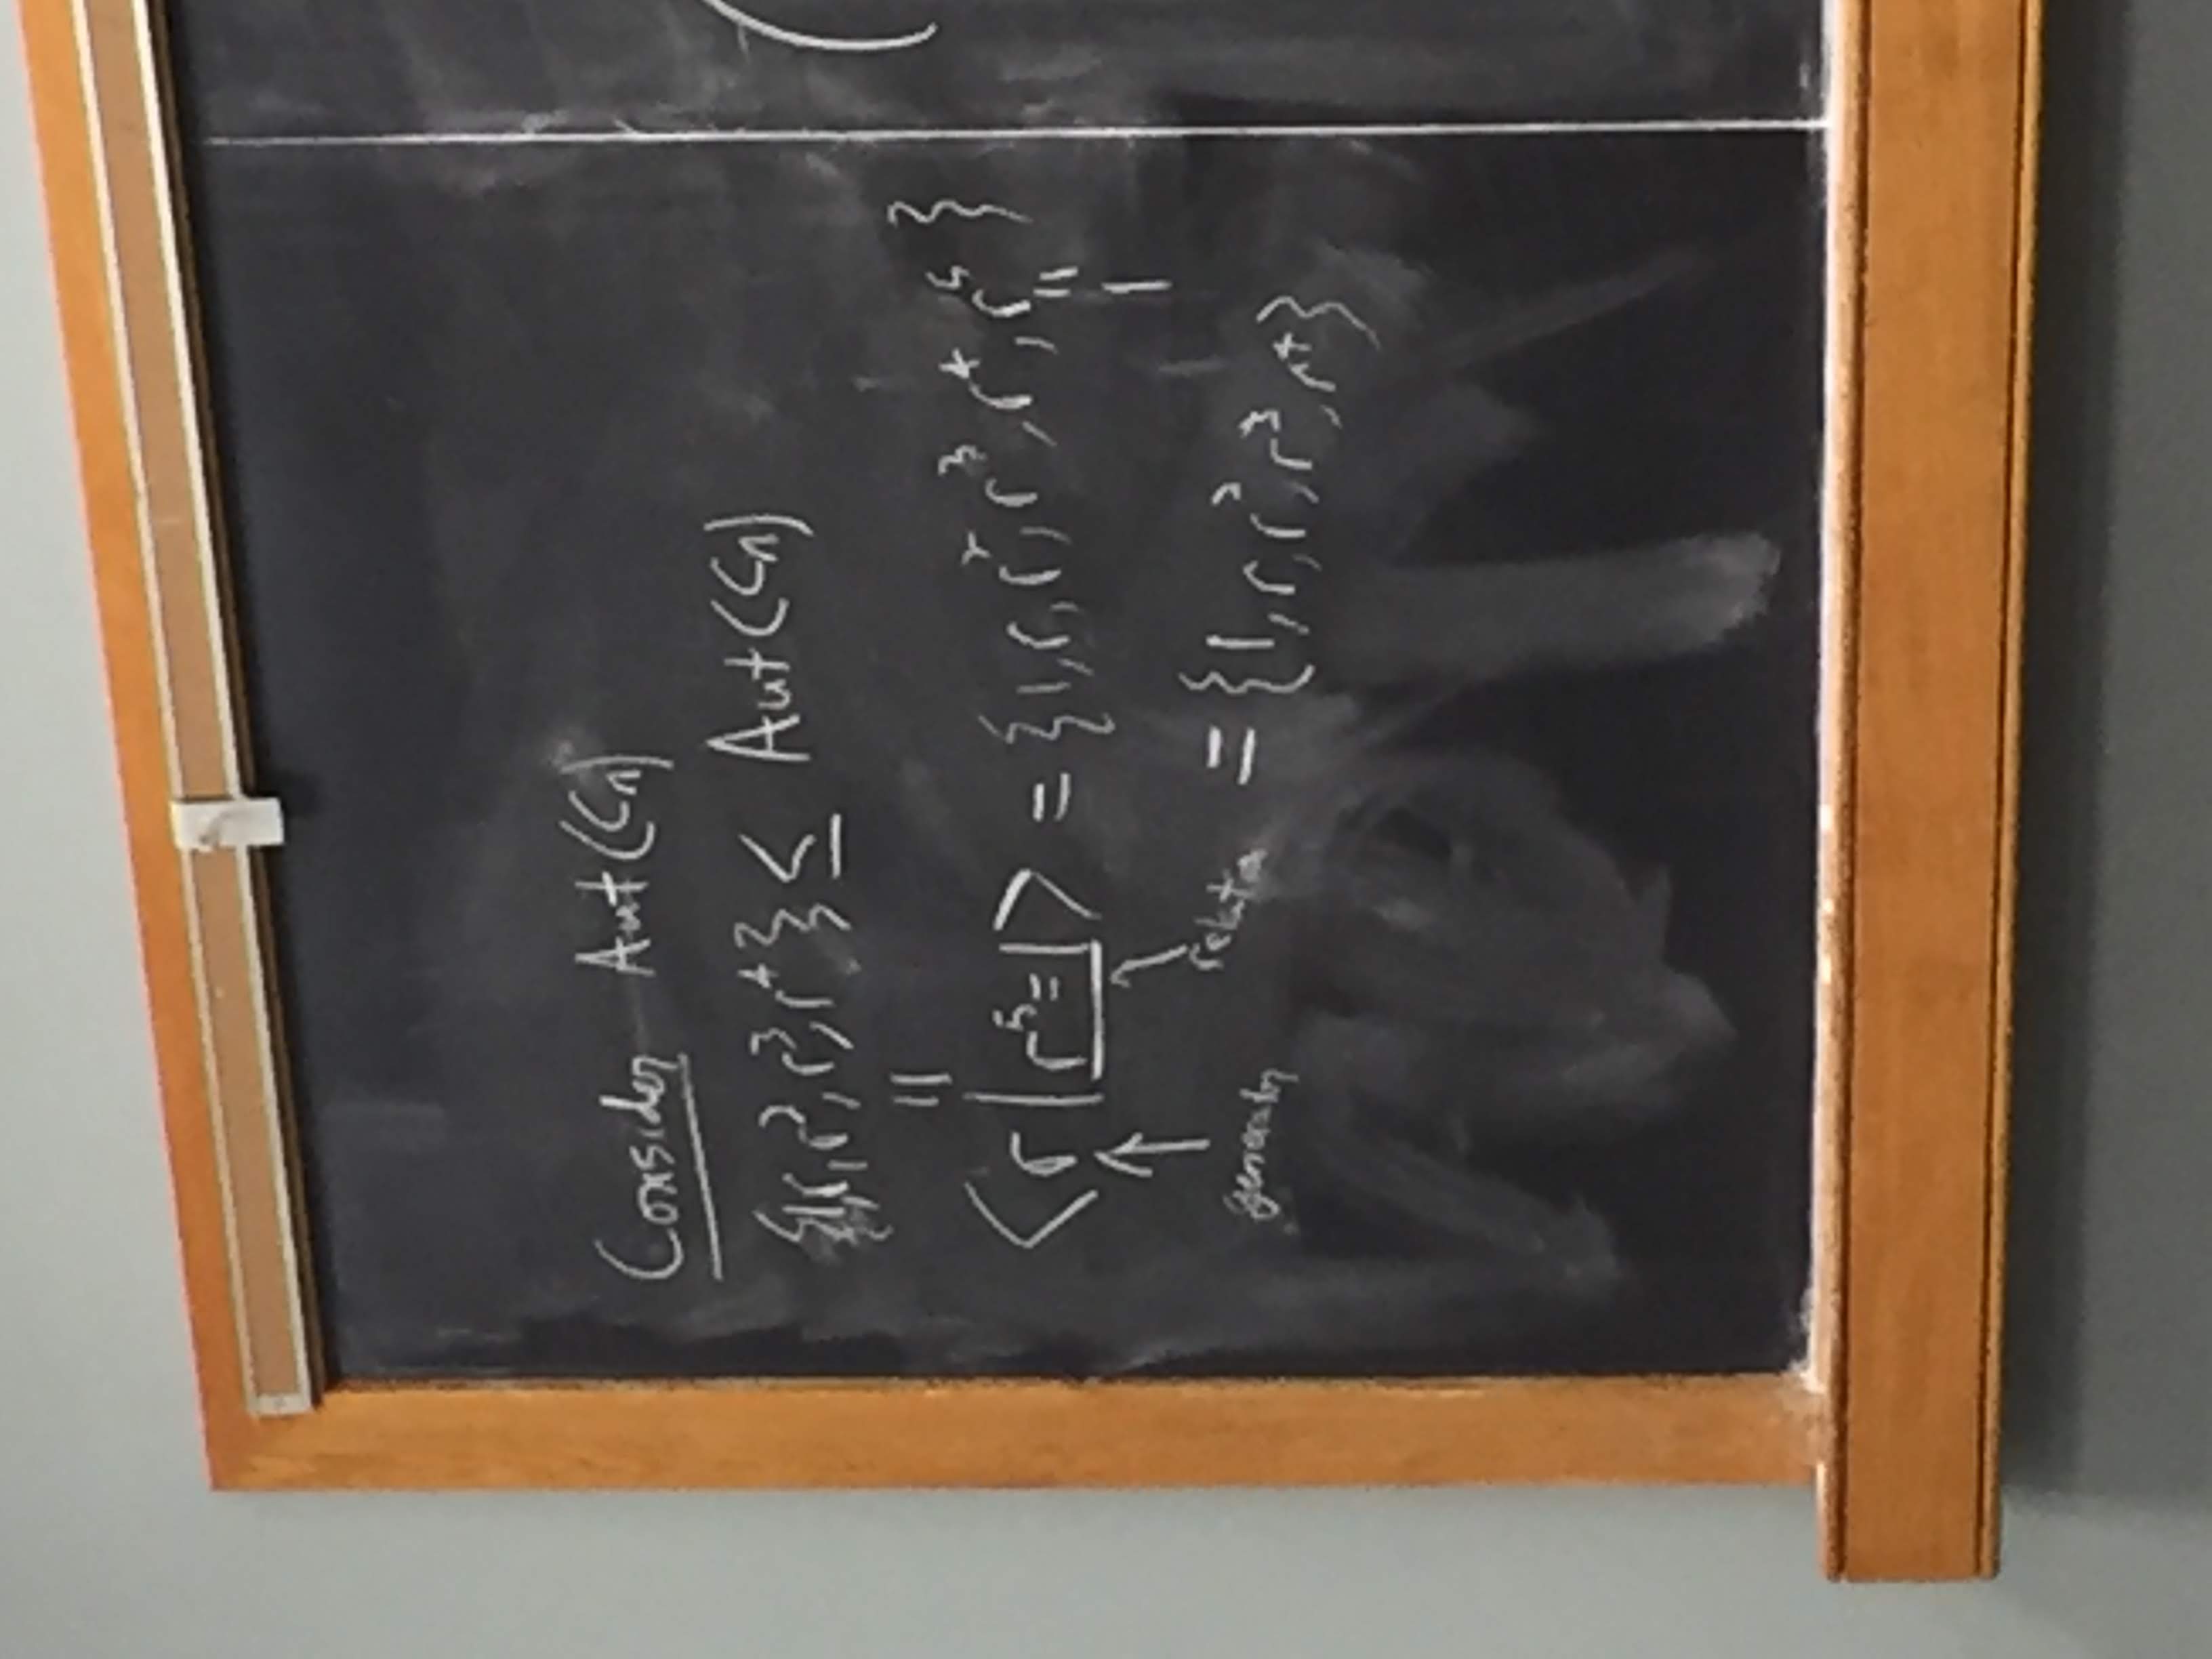 Consider Aut(Cn)
{1,r,r²,r³,r⁴} ≤ Aut(Cn)
=
<r | r⁵=1> = {1,r,r²,r³,r⁴,r⁵}
=
1
generator
relation
= {1,r,r²,r³,r⁴}
(